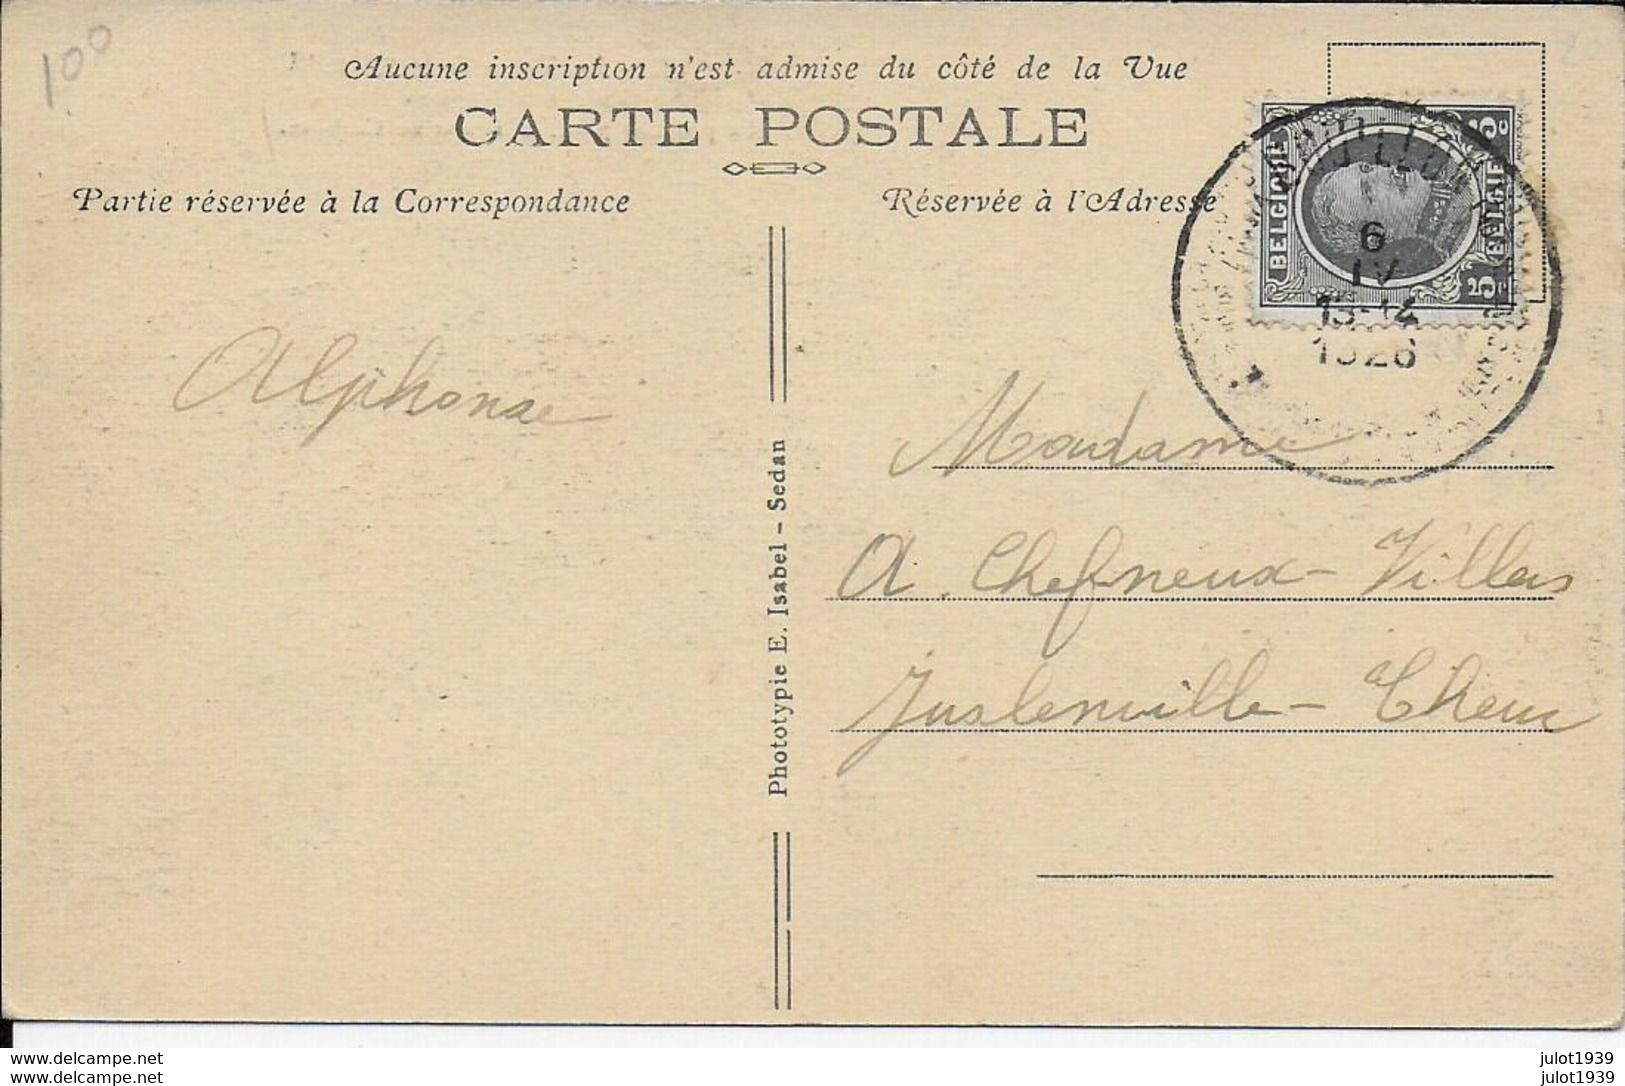 100
Aucune inscription n'est admise du côté de la Vue
CARTE POSTALE
Partie réservée à la Correspondance
Réservée à l'Adresse
BELGIQUE
BELGIË
5c
5c
BOUILLON
6
IV
13-14
1926
Alphonse
Madame
A. Chefneux - Villas
Juslenville - Theux
Phototypie E. Isabel - Sedan
www.delcampe.net
julot1939
www.delcampe.net
julot1939